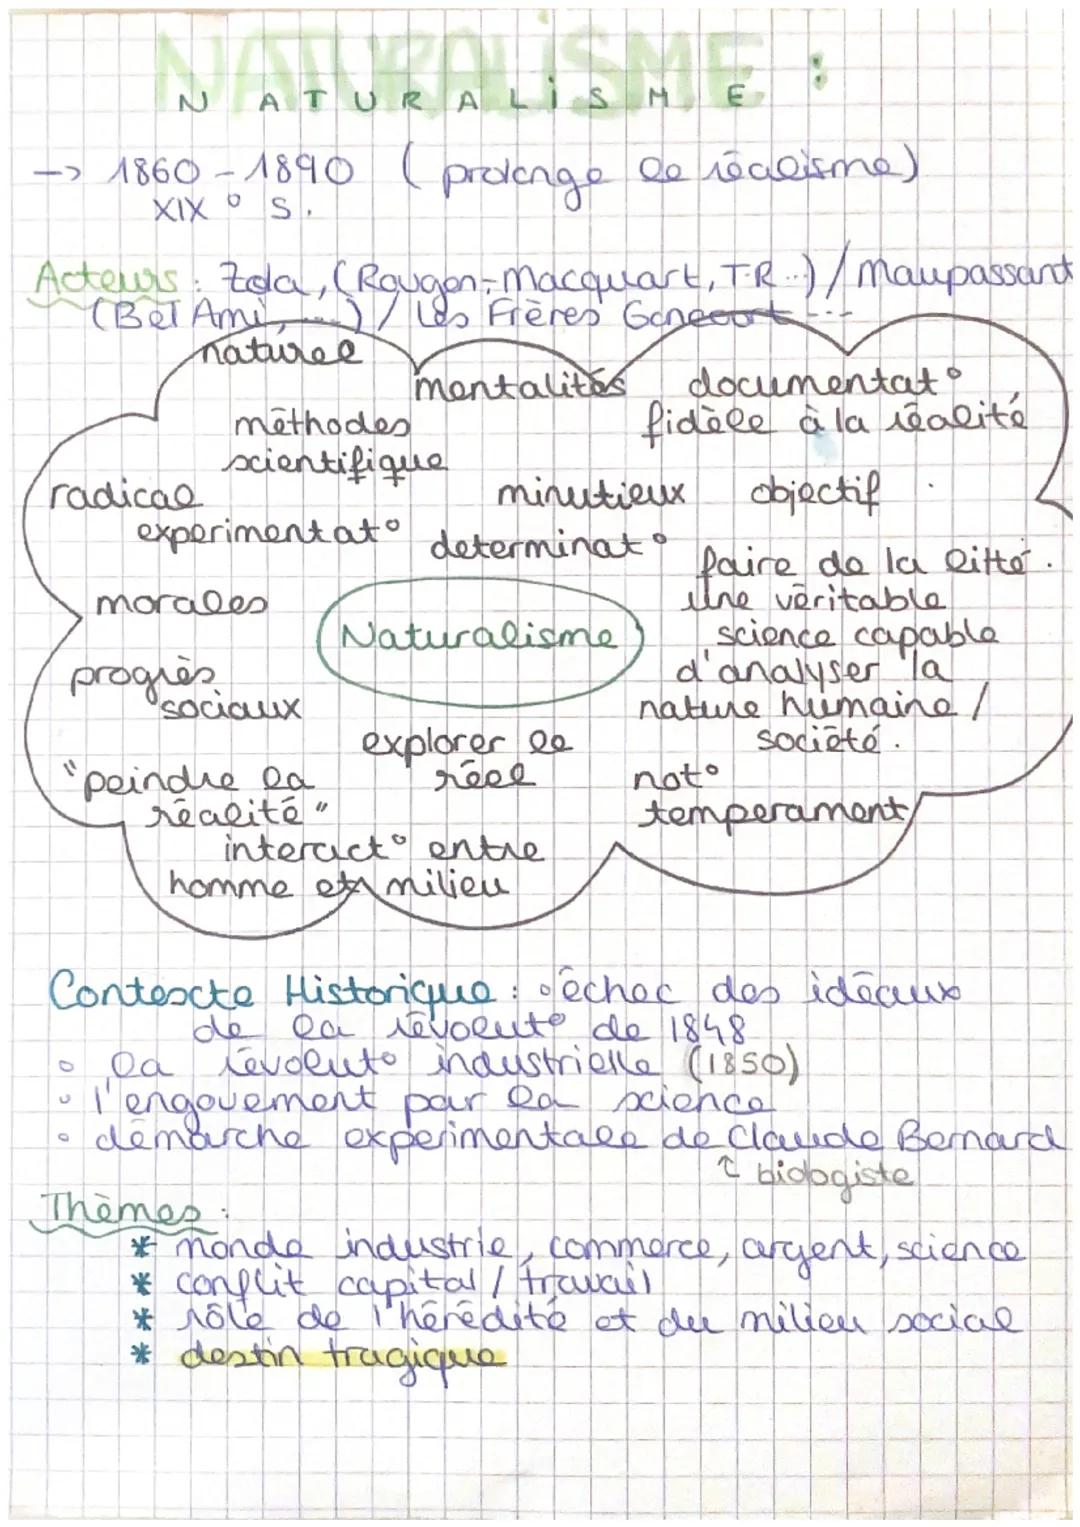 NATURALISME :
NATURALISME
-> 1860-1890 (prolonge le réalisme)
XIX° S.
Acteurs : Zola, (Rougon-Macquart, T.R...) / Maupassant
(Bel Ami, ...) / Les Frères Goncourt ---
naturel
mentalités documentat°
méthodes fidèle à la réalité
scientifique
radical minutieux objectif
experimentat° determinat°
faire de la litté.
morales une véritable
Naturalisme science capable
progrès d'analyser la
sociaux nature humaine /
explorer le société.
"peindre la réel not°
réalité" temperament
interact° entre
homme et milieu
Contexte Historique : ° échec des idéaux
de la révolut° de 1848
° la révolut° industrielle (1850)
° l'engouement par la science
° démarche experimentale de Claude Bernard
↑ biologiste
Thèmes :
* monde industrie, commerce, argent, science
* conflit capital / travail
* rôle de l'hérédité et du milieu social
* destin tragique